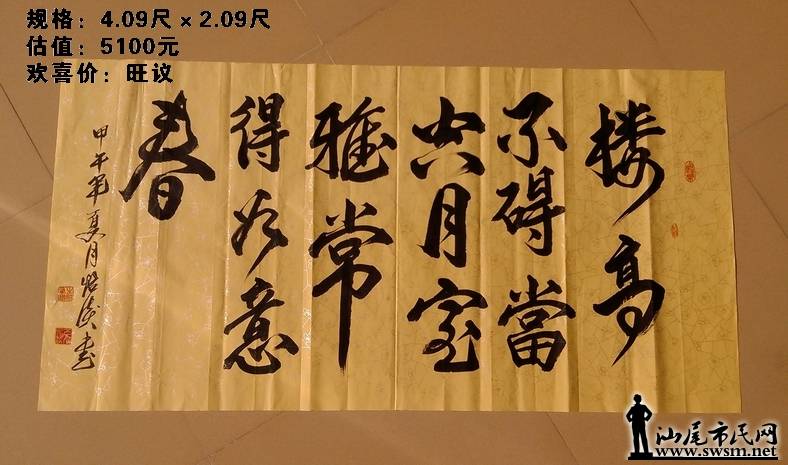 规格：4.09尺×2.09尺
估值：5100元
欢喜价：旺议
楼高
不碍當
空月室
雅常
得如意
春
甲午年夏月 书
汕尾市民网
www.swsm.net